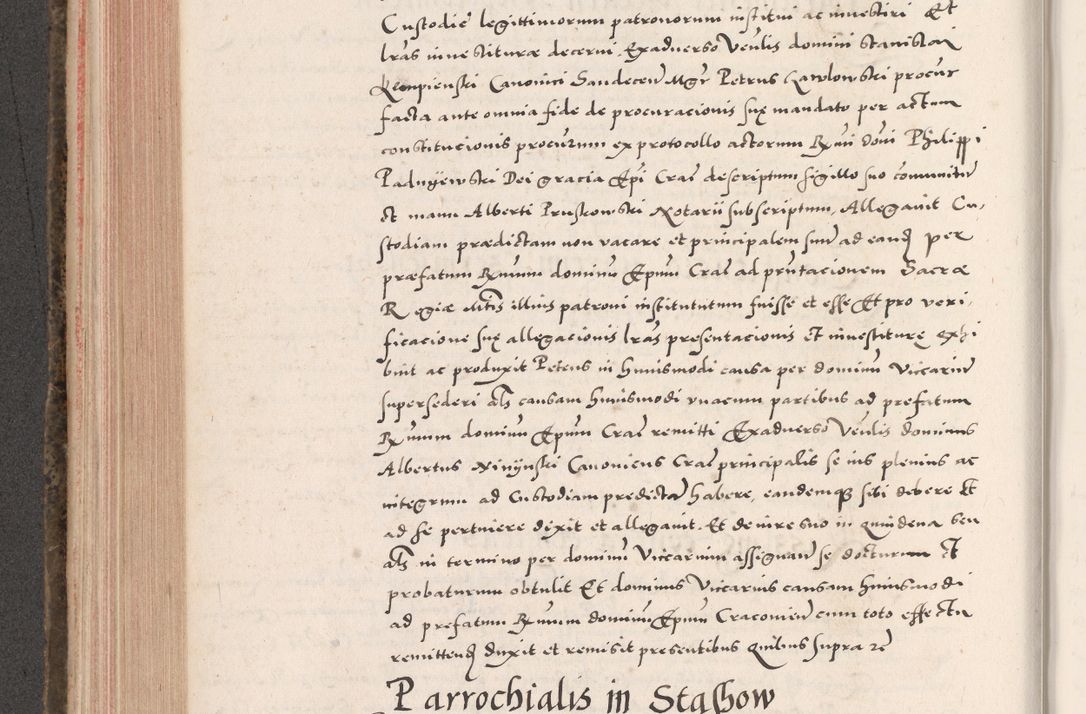 Custodiē legittimorum patronorum institui ac inuestiri Et
lras inuestiturae decerni. Exaduerso Venlis domini Stanislai
Kempienski Canonici Sandecen Mgr Petrus Kawlowski procur
facta ante omnia fide de procuracionis suę mandato per actum
constitucionis procurum ex protocollo actorum Rxmi dom̄ Philippi
Padnijewski Dei gracia Ep̄i Cra descriptum sigillo suo communitum
et manu Alberti Pruskowski Notarii subscriptum, Allegauit Cu,
stodiam praedictam non vacare et principalem suū ad eand per
praefatum Rxmum dominū Ep̄um Cra ad prntacionem Sacrae
Regiae Mttis illius patroni institututum fuisse et esse Et pro veri,
ficacione suę allegacionis lras presentacionis et inuestiturę exhi
buit ac produxit Petens in huiusmodi causa per dominū Viccariū
supersederi als causam huiusmodi vnacum partibus ad prefatum
Rxmum dominū Ep̄um Cra remitti Exaduerso Venlis dominus
Albertus Ninijnski Canonicus Cra principalis se ius plenius ac
integrum ad Custodiam predictā habere, eandemque sibi debere et
ad se pertinere dixit et allegauit. Et de iure suo in quindena seu
als in termino per dominū Viccarium assignan se docturum et
probaturum obtulit Et dominus Viccarius causam huiusmodi
ad prefatum Rxmum dominū Ep̄um Cracouien cum toto effectu
remittend duxit et remisit presentibus quibus supra rc
Parrochialis in Stashow